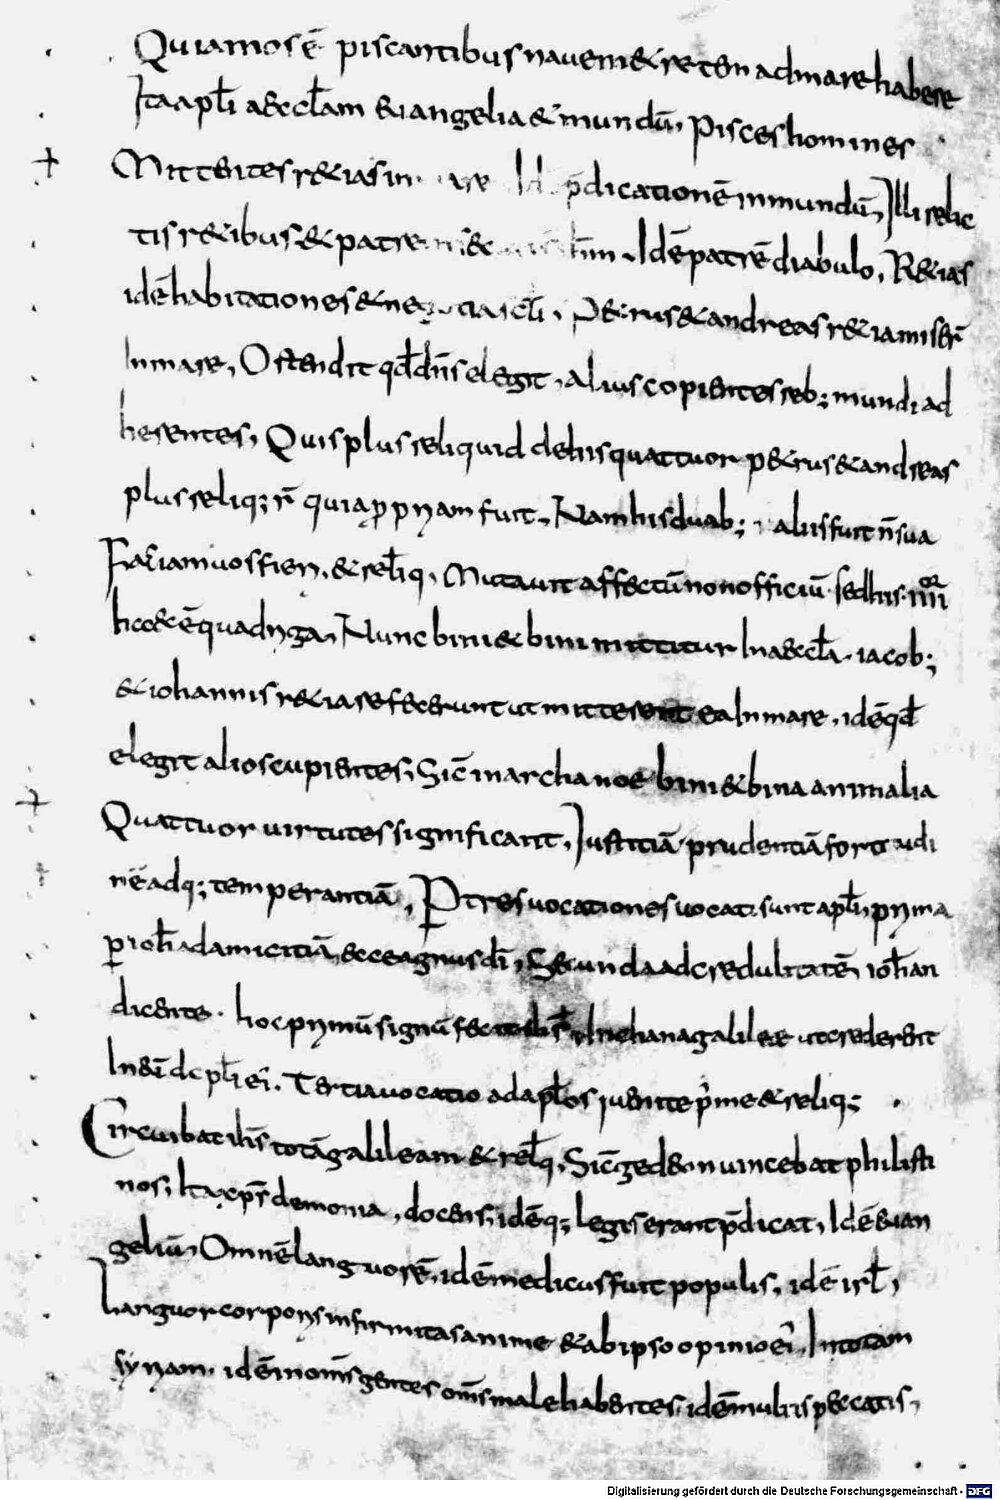 Quia mos ē piscantibus navem & rete in ad mare habere
Ita apłi aeccłam & uangelia & mundū, Pisces homines
Mittentes r&ias in are Id p̄dicationē in mundū, Illi relic
tis r&ibus & patrem Idē patrē diabulo, R&ias
idē habitationes & P&rus & andreas r&ia miser̄
In mare, Ostendit qđ dn̄s elegit, alius copientes reb; mundi ad
herentes, Quis plus reliquid de his quattuor p&rus & andreas
plus reliq; r̄ quia p̲p̲ riam fuit, Nam his duab; aliis fuit n̄ sua
Faciam uos fieri, & relīq, Mutauit affectū non officiū. sed his. IIIIor
hoc & ē quadriga, Nunc bini & bini mittitur In aeccła. iacob;
& iohannis r&ia refecerunt ut mitterent ea In mare, idē qđ
elegit alios cupientes, Sic̄ in archa noe bini & bina animalia
Quattuor uirtutes significant, Iustitiā prudentiā fortitudi
nē adq; temperantiā, P tres uocationes uocati sunt apłi, prima
p̲ ioh̄ ad amicitiā, ecce agnus dī, Secunda ad credulitatē, ioh̄an
dicente. hoc primū signū fec In chana galileae ut crederent
In eū discipłi eī. Tertia uocatio ad apłos, uenite p̄ me & reliq;
Circuibat ih̄s totā galileam & relq, Sic̄ gedeon uincebat philisti
nos, Ita xp̄s demonia, docens, idē q; legis erant p̄dicat, Idē euan
geliū, Omnē languorē, idē medicus fuit populis, idē isrł,
Languor corporis infirmitas anime & ab ipso opinio eī, In totam
syriam. idē in om̄s gentes om̄s male habentes, idē multis peccatis,
Digitalisierung gefördert durch die Deutsche Forschungsgemeinschaft - DFG